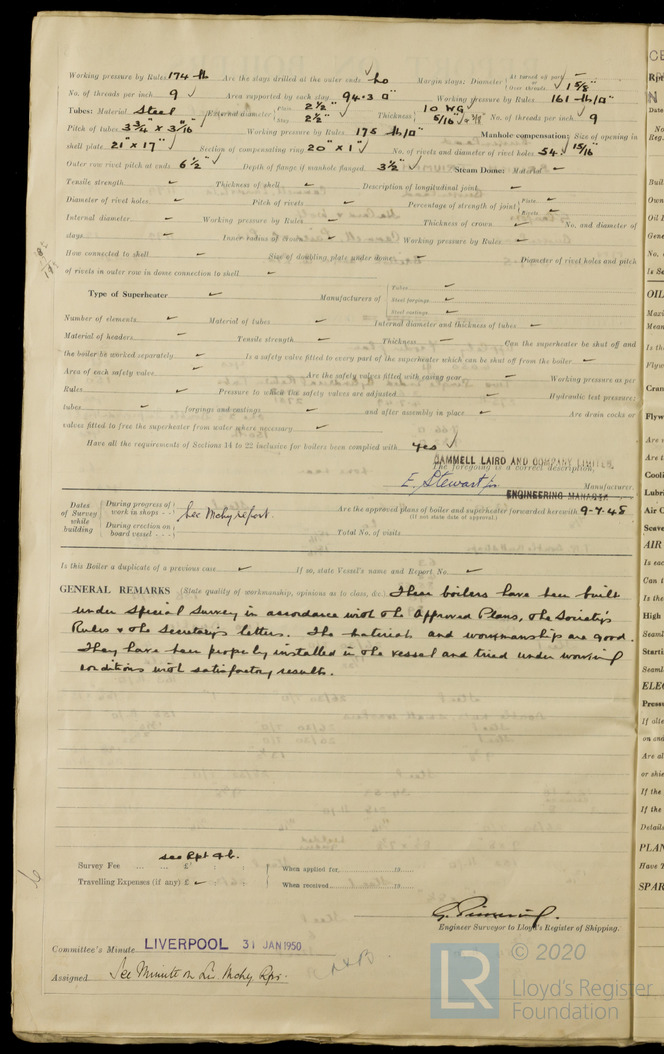 Working pressure by Rules 174 lb Are the stays drilled at the outer ends No Margin stays: Diameter { At turned off part — or Over threads 1 5/8"
No. of threads per inch 9 Area supported by each stay 94.3 □" Working pressure by Rules 161 lb/□"
Tubes: Material Steel External diameter { Plain 2 1/2" Stay 2 1/2" Thickness { 10 WG 5/16" + 3/8" No. of threads per inch 9
Pitch of tubes 3 3/4" × 3 11/16" Working pressure by Rules 175 lb/□" Manhole compensation: Size of opening in
shell plate 21" × 17" Section of compensating ring 20" × 1" No. of rivets and diameter of rivet holes 54: 15/16"
Outer row rivet pitch at ends 6 1/2" Depth of flange if manhole flanged 3 1/2" Steam Dome: Material
Tensile strength Thickness of shell Description of longitudinal joint
Diameter of rivet holes Pitch of rivets Percentage of strength of joint { Plate Rivets
Internal diameter Working pressure by Rules Thickness of crown No. and diameter of
stays Inner radius of Working pressure by Rules
How connected to shell Size of doubling plate under dome Diameter of rivet holes and pitch
of rivets in outer row in dome connection to shell
Type of Superheater Manufacturers of { Tubes Steel forgings Steel castings
Number of elements Material of tubes Internal diameter and thickness of tubes
Material of headers Tensile strength Thickness Can the superheater be shut off and
the boiler be worked separately Is a safety valve fitted to every part of the superheater which can be shut off from the boiler
Area of each safety valve Are the safety valves fitted with easing gear Working pressure as per
Rules Pressure to which the safety valves are adjusted Hydraulic test pressure:
tubes forgings and castings and after assembly in place Are drain cocks or
valves fitted to free the superheater from water where necessary
Have all the requirements of Sections 14 to 22 inclusive for boilers been complied with yes
CAMMELL LAIRD AND COMPANY LIMITED.
The foregoing is a correct description,
E. Stewart Manufacturer.
ENGINEERING MANAGER
Dates of Survey while building { During progress of work in shops - - During erection on board vessel - - - } See Mchy report. Are the approved plans of boiler and superheater forwarded herewith 9-7-48
(If not state date of approval.)
Total No. of visits
Is this Boiler a duplicate of a previous case If so, state Vessel's name and Report No.
GENERAL REMARKS (State quality of workmanship, opinions as to class, &c.) These boilers have been built
under special survey in accordance with the Approved Plans, the Society's
Rules & the Secretary's letters. The material and workmanship are good.
They have been properly installed in the vessel and tried under working
conditions with satisfactory results.
see Rpt 4b.
Survey Fee ... ... £ : : When applied for 19
Travelling Expenses (if any) £ : : When received 19
Engineer Surveyor to Lloyd's Register of Shipping.
Committee's Minute LIVERPOOL 31 JAN 1950
Assigned See Minute on Lv. Mchy Rpt.
LR © 2020
Lloyd's Register
Foundation